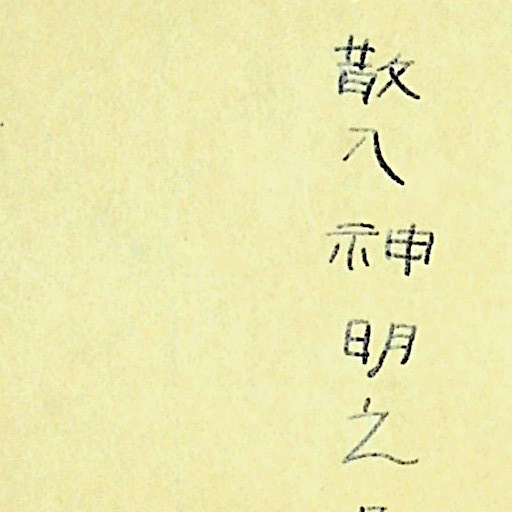 散入神明之